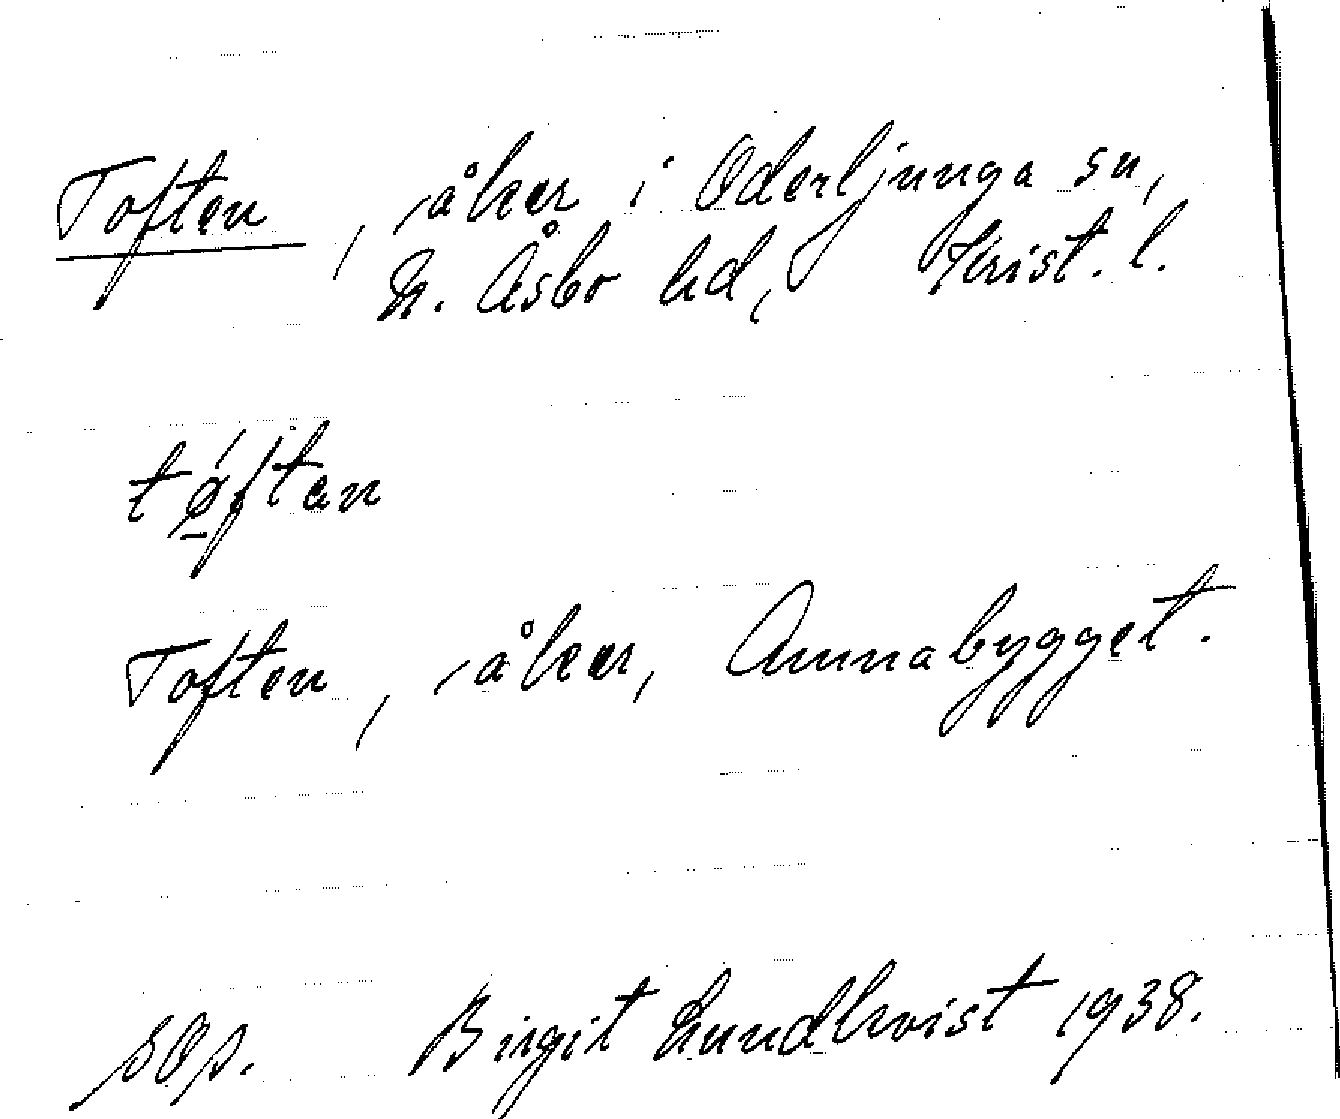 Toften, åker i Oderljunga sn,
N. Åsbo hd, Krist. l.
tǿftan
Toften, åker, Annabygget.
sOp. Birgit Lundkvist 1938.